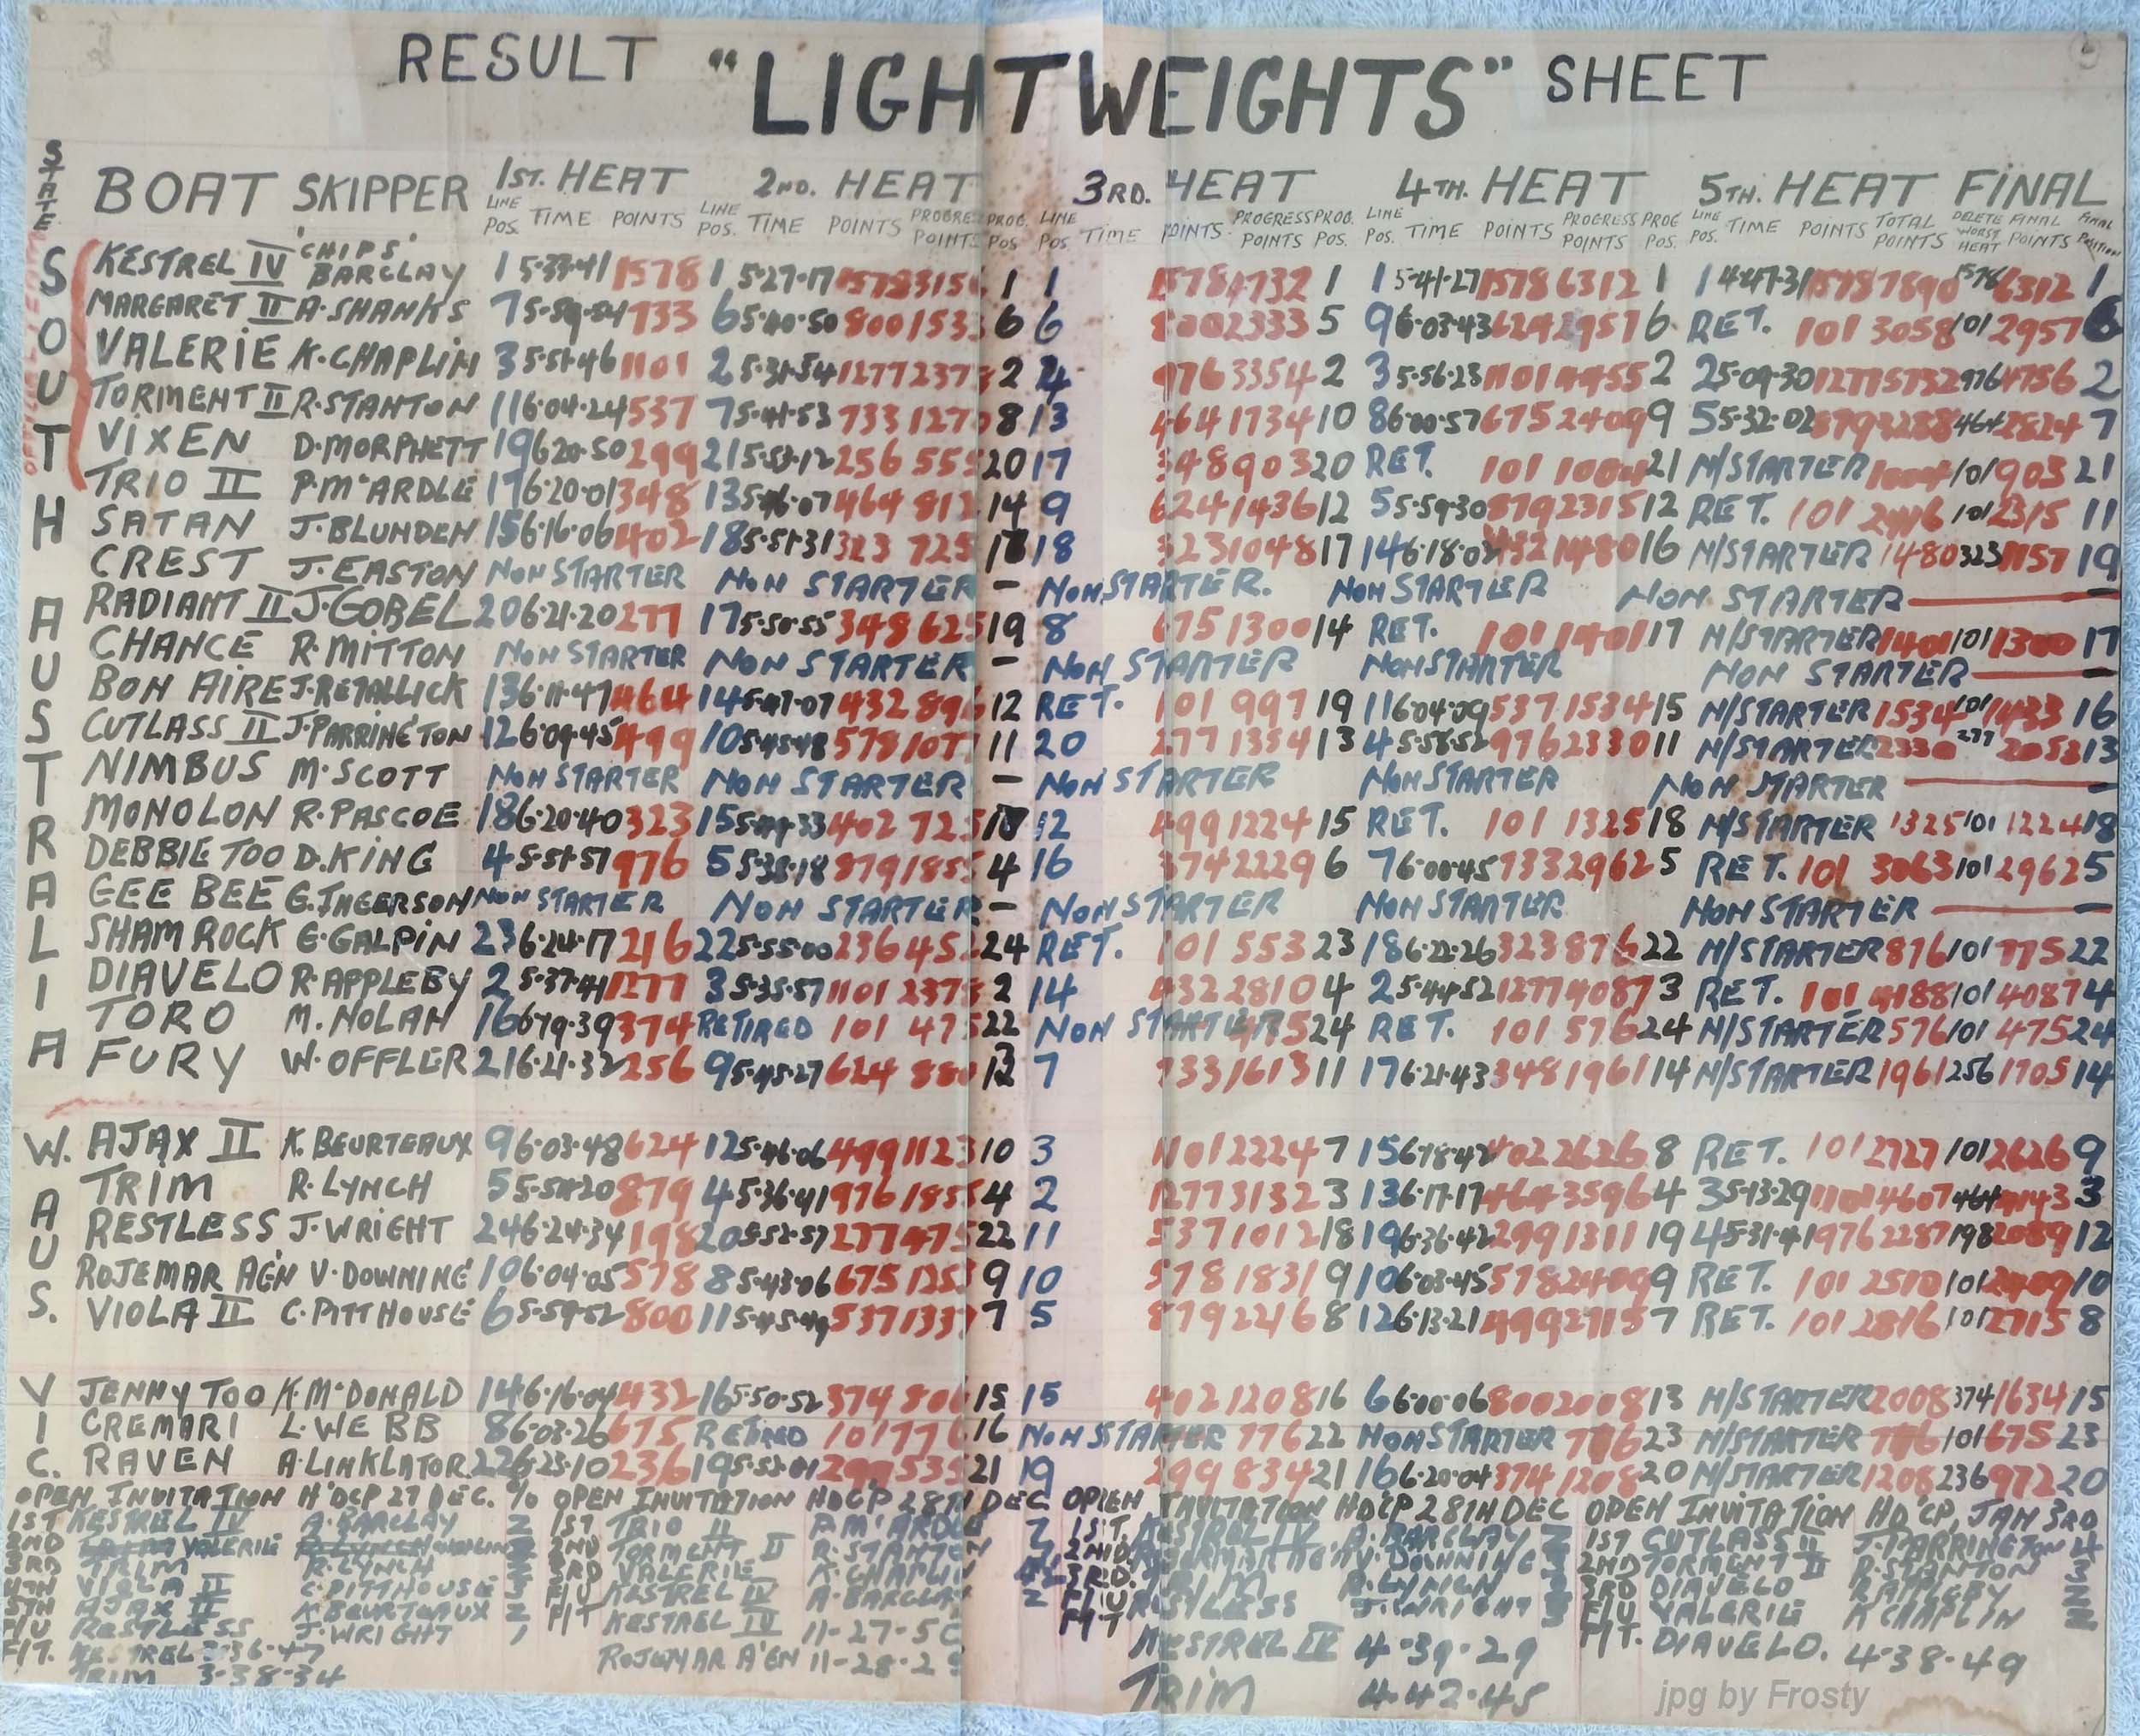 RESULT "LIGHTWEIGHTS" SHEET
STATE BOAT SKIPPER 1ST. HEAT 2ND. HEAT 3RD. HEAT 4TH. HEAT 5TH. HEAT FINAL
LINE POS. TIME POINTS LINE POS. TIME POINTS PROGRESS POINTS PROG. POS. LINE POS. TIME POINTS PROGRESS POINTS PROG. POS. LINE POS. TIME POINTS PROGRESS POINTS PROG POS. LINE POS. TIME POINTS TOTAL POINTS DELETE WORST HEAT FINAL POINTS FINAL POSITION
SOUTH AUSTRALIA
KESTREL IV 'CHIPS' BARCLAY 1 1578 1 5·27·17 1578 3156 1 1 1578 4732 1 1 5·41·27 1578 6312 1 1 1578 7890 1578 6312 1
MARGARET II A·SHANKS 7 733 6 5·40·50 800 1533 6 6 800 2333 5 9 6·03·43 624 2957 6 RET. 101 3058 101 2957 6
VALERIE K·CHAPLIN 3 5·51·46 1101 2 5·31·54 1277 2378 2 4 976 3354 2 3 5·56·23 1101 4455 2 2 5·09·30 1277 5732 976 4756 2
TORMENT II R·STANTON 11 6·04·24 537 7 5·41·53 733 1270 8 13 464 1734 10 8 6·00·57 675 2409 9 5 5·32·02 879 3288 464 2824 7
VIXEN D·MORPHETT 19 6·20·50 299 21 5·53·12 256 555 20 17 348 903 20 RET. 101 1004 21 N/STARTER 1004 101 903 21
TRIO II P·McARDLE 17 6·20·01 348 13 5·46·07 464 812 14 9 624 1436 12 5 5·59·30 879 2315 12 RET. 101 2416 101 2315 11
SATAN J·BLUNDEN 15 6·16·06 402 18 5·51·31 323 725 18 323 1048 17 14 432 1480 16 N/STARTER 1480 323 1157 19
CREST J·EASTON NON STARTER NON STARTER – NON STARTER. NON STARTER NON STARTER –
RADIANT II J·GOBEL 20 6·21·20 277 17 5·50·55 348 625 19 8 675 1300 14 RET. 101 1401 17 N/STARTER 1401 101 1300 17
CHANCE R·MITTON NON STARTER NON STARTER – NON STARTER NON STARTER NON STARTER –
BON AIRE J·RETALLICK 13 6·11·47 464 14 5·47·07 432 896 12 RET. 101 997 19 11 6·04·09 537 1534 15 N/STARTER 1534 101 1433 16
CUTLASS II J·PARRINGTON 12 6·09·45 499 10 5·45·48 578 1077 11 20 277 1354 13 4 5·58·52 976 2330 11 N/STARTER 2330 277 2053 13
NIMBUS M·SCOTT NON STARTER NON STARTER – NON STARTER NON STARTER NON STARTER –
MONOLON R·PASCOE 18 6·20·40 323 15 402 725 12 499 1224 15 RET. 101 1325 18 N/STARTER 1325 101 1224 18
DEBBIE TOO D.KING 4 5·51·57 976 5 5·38·18 879 1855 4 16 374 2229 6 7 6·00·45 733 2962 5 RET. 101 3063 101 2962 5
GEE BEE G.INGERSON NON STARTER NON STARTER – NON STARTER NON STARTER NON STARTER –
SHAMROCK G·GALPIN 23 6·24·17 216 22 5·55·00 236 452 24 RET. 101 553 23 18 6·22·26 323 876 22 N/STARTER 876 101 775 22
DIAVELO R·APPLEBY 2 5·37·41 1277 3 5·35·57 1101 2378 2 14 432 2810 4 2 5·44·52 1277 4087 3 RET. 101 4188 101 4087 4
TORO M.NOLAN 16 374 RETIRED 101 475 22 NON STARTER 475 24 RET. 101 576 24 N/STARTER 576 101 475 24
FURY W·OFFLER 21 6·21·32 256 9 5·45·27 624 880 7 733 1613 11 17 6·21·43 348 1961 14 N/STARTER 1961 256 1705 14
W. AUS.
AJAX II K·BEURTEAUX 9 6·03·48 624 12 5·46·06 499 1123 10 3 1101 2224 7 15 6·18·42 402 2626 8 RET. 101 2727 101 2626 9
TRIM R·LYNCH 5 879 4 5·36·41 976 1855 4 2 1277 3132 3 13 6·17·17 464 3596 4 3 5·13·29 1101 4607 464 4143 3
RESTLESS J·WRIGHT 24 6·24·34 198 20 5·52·57 277 475 22 11 537 1012 18 19 6·36·42 299 1311 19 4 5·31·41 976 2287 198 2089 12
ROJEMAR AGN V·DOWNING 10 6·04·05 578 8 5·43·06 675 1253 9 10 578 1831 9 10 6·03·45 578 2409 9 RET. 101 2510 101 2409 10
VIOLA II C·PITTHOUSE 6 5·59·52 800 11 5·45·49 537 1337 7 5 879 2216 8 12 6·13·21 499 2715 7 RET. 101 2816 101 2715 8
VIC.
JENNY TOO K·McDONALD 14 6·16·04 432 16 5·50·52 374 806 15 15 402 1208 16 6 6·00·06 800 2008 13 N/STARTER 2008 374 1634 15
CREMARI L·WEBB 8 6·03·26 675 RETIRED 101 776 16 NON STARTER 776 22 NON STARTER 776 23 N/STARTER 776 101 675 23
RAVEN A·LINKLATOR 22 6·23·10 236 19 299 535 21 19 299 834 21 16 6·20·04 374 1208 20 N/STARTER 1208 236 972 20
OPEN INVITATION H'DCP 27 DEC. OPEN INVITATION HDCP 28TH DEC OPEN INVITATION HDCP 28TH DEC OPEN INVITATION HD'CP, JAN 3RD
1ST KESTREL IV A·BARCLAY 2 1ST TRIO II P.McARDLE 1ST. KESTREL IV A·BARCLAY 1ST CUTLASS II J·PARRINGTON 4
2ND VALERIE 2ND TORMENT II R·STANTON 2ND V·DOWNING 2ND TORMENT II R·STANTON 3
3RD TRIM R·LYNCH 3RD VALERIE K·CHAPLIN 3RD. TRIM R·LYNCH 3RD DIAVELO R·APPLEBY 2
4TH VIOLA II C·PITTHOUSE F/U KESTREL IV A·BARCLAY F/U RESTLESS J·WRIGHT F/U VALERIE K CHAPLIN 2
5TH AJAX II K·BEURTEAUX 2 F/T KESTREL IV 11-27-50 F/T KESTREL IV 4·39·29 F/T. DIAVELO. 4·38·49
F/U RESTLESS J·WRIGHT 1 ROJEMAR A'GN TRIM 4·42·45
F/T. KESTREL 3·36·47
TRIM 3·38·34
jpg by Frosty